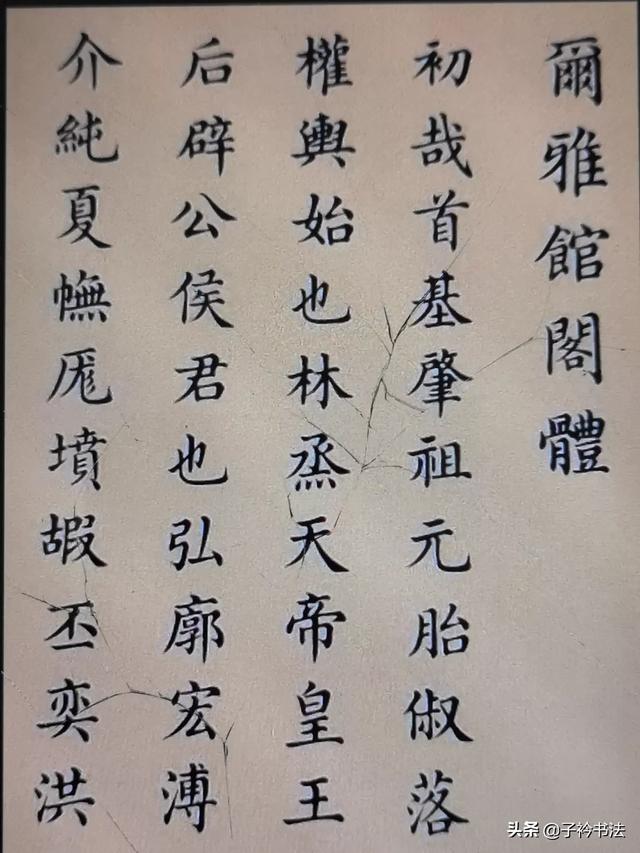 爾雅館閣體
初哉首基肇祖元胎俶落
權輿始也林烝天帝皇王
后辟公侯君也弘廓宏溥
介純夏幠厖墳嘏丕奕洪
头条 @子衿书法